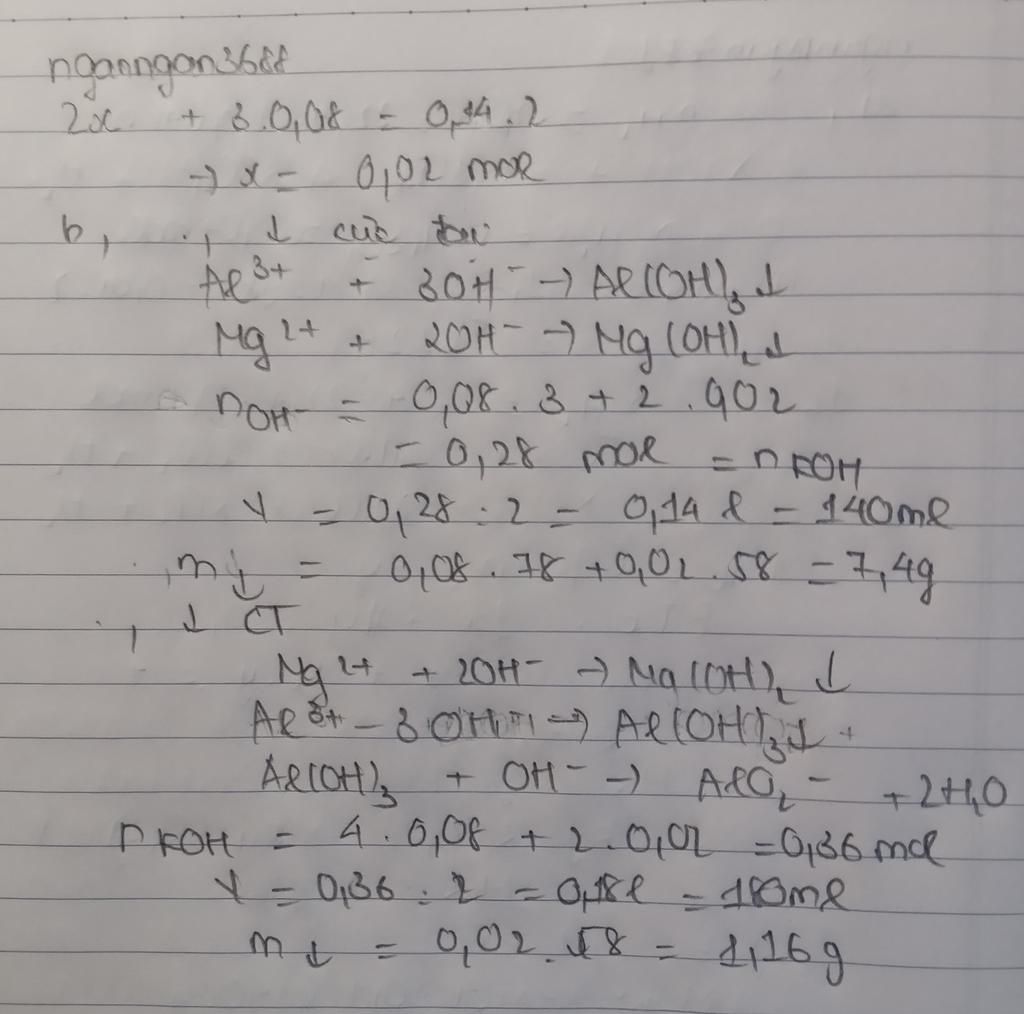 nganngan3688
2x + 3.0,08 = 0,14.2
→ x = 0,02 mol
b, ., ↓ cực đại
Al³⁺ + 3OH⁻ → Al(OH)₃↓
Mg²⁺ + 2OH⁻ → Mg(OH)₂↓
nOH⁻ = 0,08.3 + 2.0,02
= 0,28 mol = nKOH
V = 0,28 : 2 = 0,14 l = 140ml
, m↓ = 0,08.78 + 0,02.58 = 7,4g
., ↓ CT
Mg²⁺ + 2OH⁻ → Mg(OH)₂ ↓
Al³⁺ - 3OH⁻ → Al(OH)₃↓
Al(OH)₃ + OH⁻ → AlO₂⁻ + 2H₂O
nKOH = 4.0,08 + 2.0,02 = 0,36 mol
V = 0,36 : 2 = 0,18l = 180ml
m↓ = 0,02.58 = 1,16g